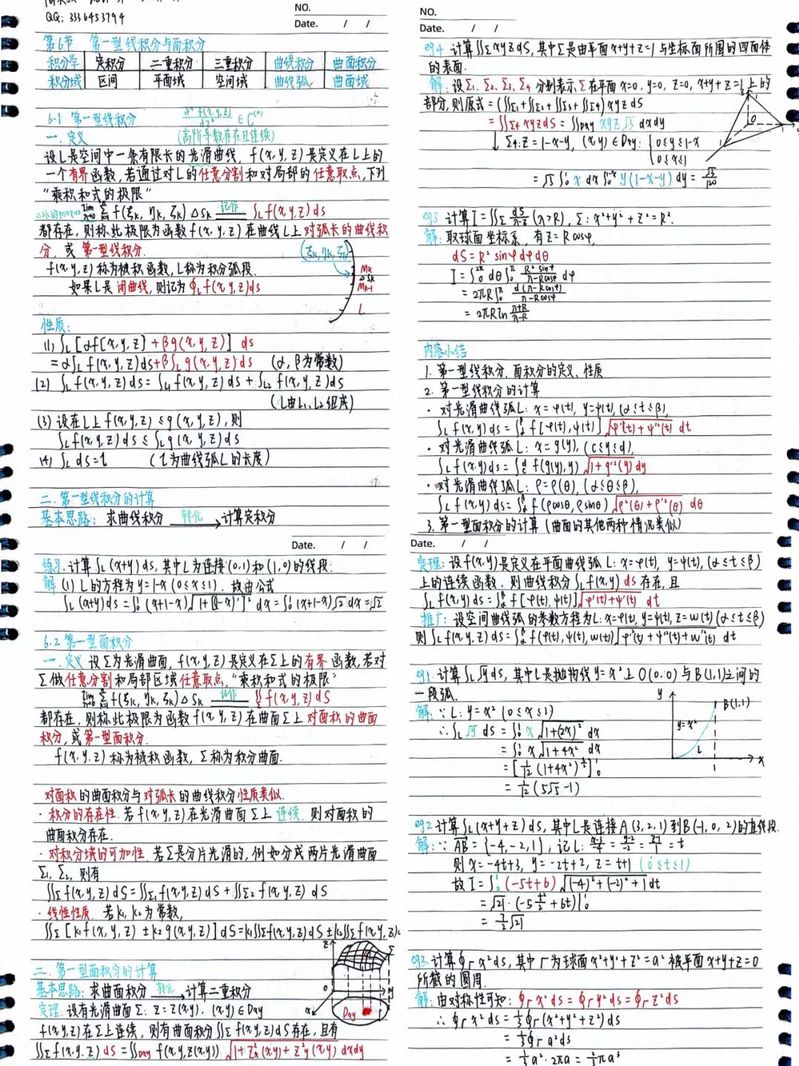 QQ: 3336453794
NO.
Date. / /
第6节 第一型线积分与面积分
积分学 定积分 二重积分 三重积分 曲线积分 曲面积分
积分域 区间 平面域 空间域 曲线弧 曲面域
6.1 第一型线积分
一. 定义 (高阶导数存在且连续)
设L是空间中一条有限长的光滑曲线, f(x,y,z)是定义在L上的
一个有界函数, 若通过对L的任意分割和对局部的任意取点, 下列
"乘积和式的极限"
lim Σ f(ξk, ηk, ζk) ΔSk 记作 ∫L f(x,y,z) ds
都存在, 则称此极限为函数f(x,y,z)在曲线L上对弧长的曲线积
分, 或第一型线积分.
f(x,y,z)称为被积函数, L称为积分弧段.
如果L是闭曲线, 则记为∮L f(x,y,z)ds
(ξk, ηk, ζk)
Mk
ΔSk
Mk-1
L
性质:
(1) ∫L [αf(x,y,z) + βg(x,y,z)] ds
= α∫L f(x,y,z)ds + β∫L g(x,y,z) ds (α, β为常数)
(2) ∫L f(x,y,z)ds = ∫L1 f(x,y,z)ds + ∫L2 f(x,y,z)ds
(L由L1、L2组成)
(3) 设在L上f(x,y,z) ≤ g(x,y,z), 则
∫L f(x,y,z)ds ≤ ∫L g(x,y,z)ds
(4) ∫L ds = l (l为曲线弧L的长度)
二. 第一型线积分的计算
基本思路: 求曲线积分 转化 计算定积分
Date. / /
练习. 计算∫L (x+y)ds, 其中L为连接(0,1)和(1,0)的线段.
解 (1) L的方程为y=1-x (0≤x≤1). 故由公式
∫L (x+y)ds = ∫₀¹ (x+1-x)√1+[(1-x)']² dx = ∫₀¹ (x+1-x)√2 dx = √2
6.2 第一型面积分
一. 定义 设Σ为光滑曲面, f(x,y,z)是定义在Σ上的有界函数, 若对
Σ做任意分割和局部区域任意取点, "乘积和式的极限"
lim Σ f(ξk, ηk, ζk) ΔSk 记作 ∬Σ f(x,y,z) dS
都存在, 则称此极限为函数f(x,y,z)在曲面Σ上对面积的曲面
积分, 或第一型面积分.
f(x,y,z)称为被积函数, Σ称为积分曲面.
对面积的曲面积分与对弧长的曲线积分性质类似.
· 积分的存在性. 若f(x,y,z)在光滑曲面Σ上连续, 则对面积的
曲面积分存在.
· 对积分域的可加性. 若Σ是分片光滑的, 例如分成两片光滑曲面
Σ1, Σ2, 则有
∬Σ f(x,y,z)dS = ∬Σ1 f(x,y,z)dS + ∬Σ2 f(x,y,z) dS
· 线性性质. 若k1, k2为常数,
∬Σ [k1f(x,y,z) ± k2g(x,y,z)] dS = k1∬Σ f(x,y,z)dS ± k2∬Σ f(x,y,z)
二. 第一型面积分的计算
基本思路: 求曲面积分 转化 计算二重积分
定理: 设有光滑曲面Σ: z=z(x,y), (x,y)∈Dxy
f(x,y,z)在Σ上连续, 则有曲面积分∬Σ f(x,y,z)dS存在, 且有
∬Σ f(x,y,z) dS = ∬Dxy f(x,y,z(x,y)) √1+z²x(x,y)+z²y(x,y) dxdy
z
Σ
o
y
x
Dxy
NO.
Date. / /
eg4. 计算∬Σ xyz dS, 其中Σ是由平面x+y+z=1与坐标面所围的四面体
的表面.
解: 设Σ1、Σ2、Σ3、Σ4分别表示Σ在平面x=0, y=0, z=0, x+y+z=1上的
部分, 则原式 = (∬Σ1+∬Σ2+∬Σ3+∬Σ4) xyz dS
= ∬Σ4 xyz dS = ∬Dxy xyz√3 dxdy
Σ4: z=1-x-y, (x,y)∈Dxy: { 0≤y≤1-x
0≤x≤1
= √3 ∫₀¹ x dx ∫₀¹⁻ˣ y(1-x-y)dy = √3/120
eg5. 计算I=∬Σ dS/λ-z (λ>R), Σ: x²+y²+z²=R².
解: 取球面坐标系, 有z=Rcosφ,
dS = R² sinφ dφ dθ
I = ∫₀²π dθ ∫₀π R² sinφ/λ-Rcosφ dφ
= 2πR ∫₀π d(λ-Rcosφ)/λ-Rcosφ
= 2πR ln λ+R/λ-R
内容小结
1. 第一型线积分、面积分的定义、性质
2. 第一型线积分的计算
· 对光滑曲线弧L: x=φ(t), y=ψ(t), (α≤t≤β),
∫L f(x,y)ds = ∫ f[φ(t),ψ(t)] √φ'²(t)+ψ'²(t) dt
· 对光滑曲线弧L: x=g(y), (c≤y≤d),
∫L f(x,y)ds = ∫ f(g(y),y) √1+g'²(y) dy
· 对光滑曲线弧L: ρ=ρ(θ), (α≤θ≤β),
∫L f(x,y)ds = ∫ f(ρcosθ,ρsinθ) √ρ²(θ)+ρ'²(θ) dθ
3. 第一型面积分的计算 (曲面的其他两种情况类似)
Date. / /
定理: 设f(x,y)是定义在平面曲线弧L: x=φ(t), y=ψ(t), (α≤t≤β)
上的连续函数. 则曲线积分∫L f(x,y) ds存在, 且
∫L f(x,y)ds = ∫ f[φ(t),ψ(t)] √φ'²(t)+ψ'²(t) dt
推广: 设空间曲线弧的参数方程为L: x=φ(t), y=ψ(t), z=w(t) (α≤t≤β)
则∫L f(x,y,z)ds = ∫ f(φ(t),ψ(t),w(t)) √φ'²(t)+ψ'²(t)+w'²(t) dt
eg1. 计算∫L √y ds, 其中L是抛物线y=x²上O(0,0)与B(1,1)之间的
一段弧.
解: ∵ L: y=x² (0≤x≤1)
∴ ∫L √y ds = ∫₀¹ x √1+(2x)² dx
= ∫₀¹ x √1+4x² dx
= [1/12 (1+4x²)^3/2]₀¹
= 1/12 (5√5-1)
y
B(1,1)
y=x²
L
x
eg2. 计算∫L (x+y+z)ds, 其中L是连接A(3,2,1)到B(-1,0,2)的直线段.
解: ∵ AB = {-4,-2,1}, 记L: x-3/-4 = y-2/-2 = z-1/1 = t
则 x=-4t+3, y=-2t+2, z=t+1 (0≤t≤1)
故I = ∫₀¹ (-5t+6) √(-4)²+(-2)²+1 dt
= √21 · (-5 t²/2 + 6t)|₀¹
= 7/2 √21
eg3. 计算∮Γ x² ds, 其中Γ为球面x²+y²+z²=a²被平面x+y+z=0
所截的圆周.
解: 由对称性可知: ∮Γ x² ds = ∮Γ y² ds = ∮Γ z² ds
∴ ∮Γ x² ds = 1/3 ∮Γ (x²+y²+z²) ds
= 1/3 ∮Γ a² ds
= 1/3 a² · 2πa = 2/3 πa³